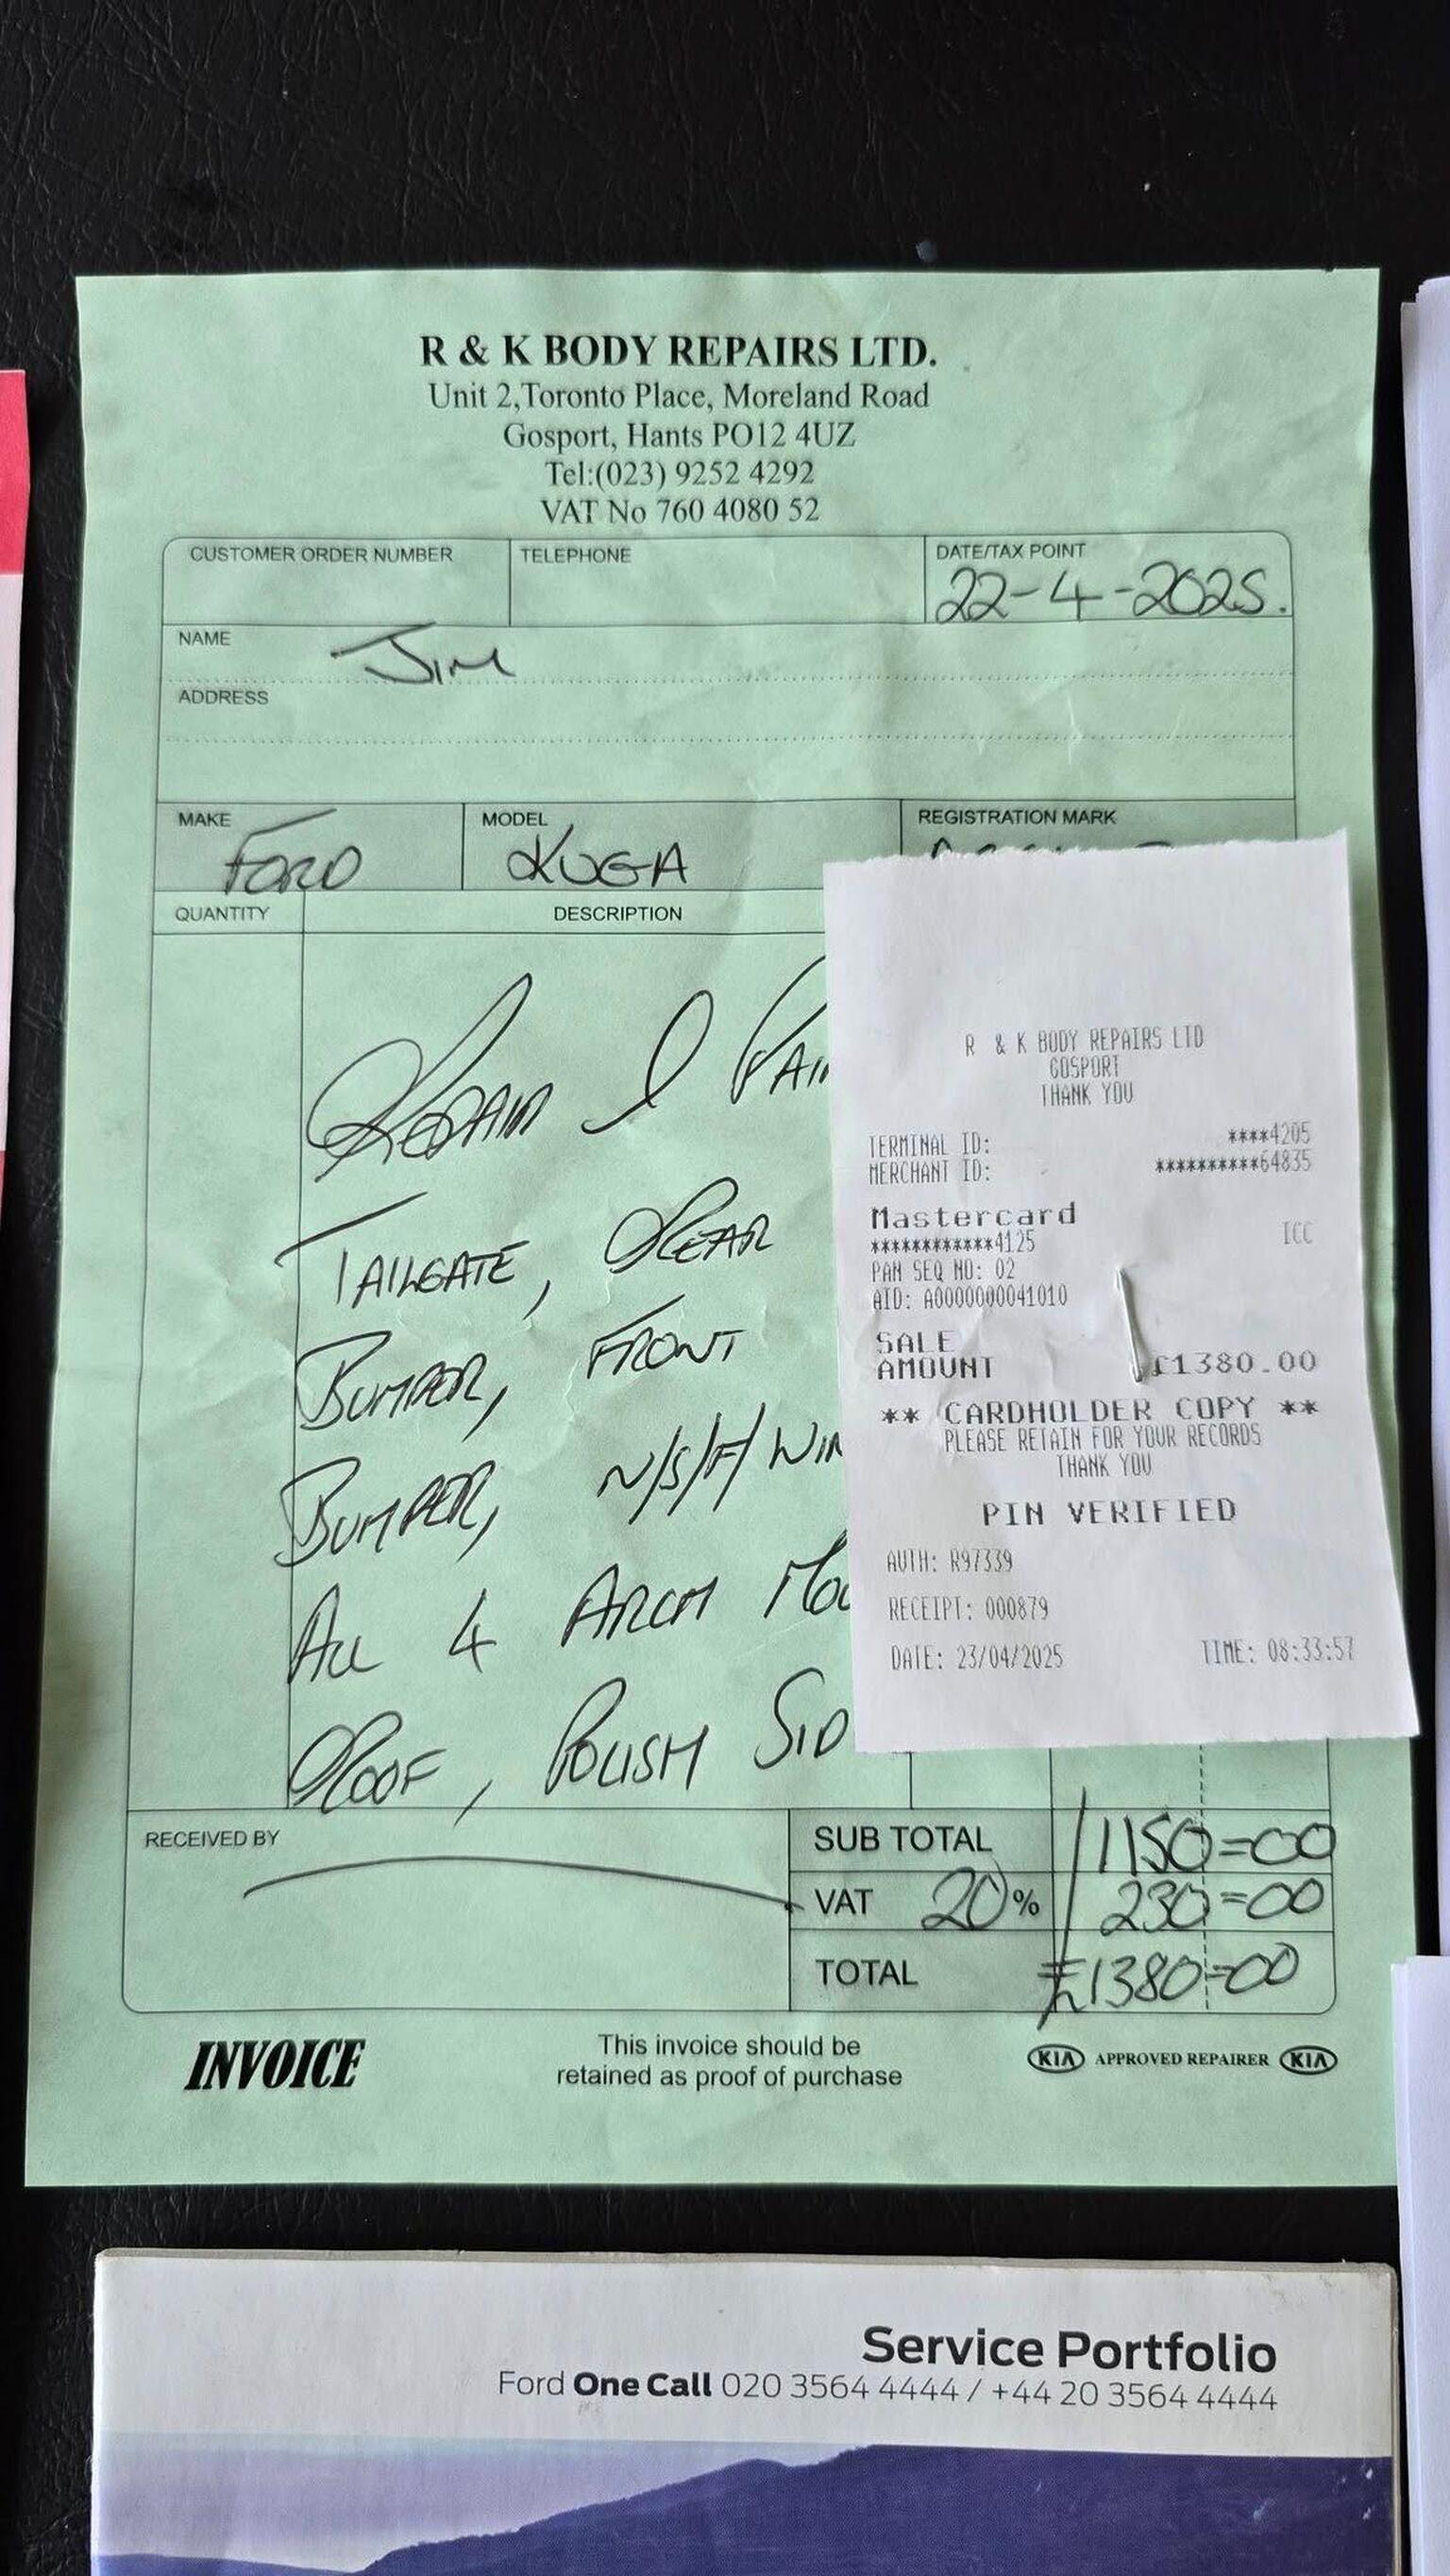 R & K BODY REPAIRS LTD.
Unit 2,Toronto Place, Moreland Road
Gosport, Hants PO12 4UZ
Tel:(023) 9252 4292
VAT No 760 4080 52
CUSTOMER ORDER NUMBER TELEPHONE DATE/TAX POINT
22-4-2025.
NAME JIM
ADDRESS
MAKE MODEL REGISTRATION MARK
FORD KUGA
QUANTITY DESCRIPTION
REPAIR &
TAILGATE, REAR
BUMPER, FRONT
BUMPER, N/S/F/
ALL 4 ARCH
ROOF, POLISH
R & K BODY REPAIRS LTD
GOSPORT
THANK YOU
TERMINAL ID: ****4205
MERCHANT ID: **********64835
Mastercard
************4125 ICC
PAN SEQ NO: 02
AID: A0000000041010
SALE
AMOUNT £1380.00
** CARDHOLDER COPY **
PLEASE RETAIN FOR YOUR RECORDS
THANK YOU
PIN VERIFIED
AUTH: R97339
RECEIPT: 000879
DATE: 23/04/2025 TIME: 08:33:57
RECEIVED BY
SUB TOTAL 1150=00
VAT 20% 230=00
TOTAL £1380=00
INVOICE
This invoice should be
retained as proof of purchase
KIA APPROVED REPAIRER KIA
Service Portfolio
Ford One Call 020 3564 4444 / +44 20 3564 4444